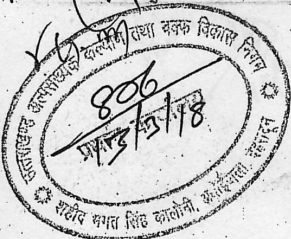 उत्तराखण्ड अल्पसंख्यक कल्याण तथा वक्फ विकास निगम
806
13/3/18
शहीद भगत सिंह कालोनी, देहरादून